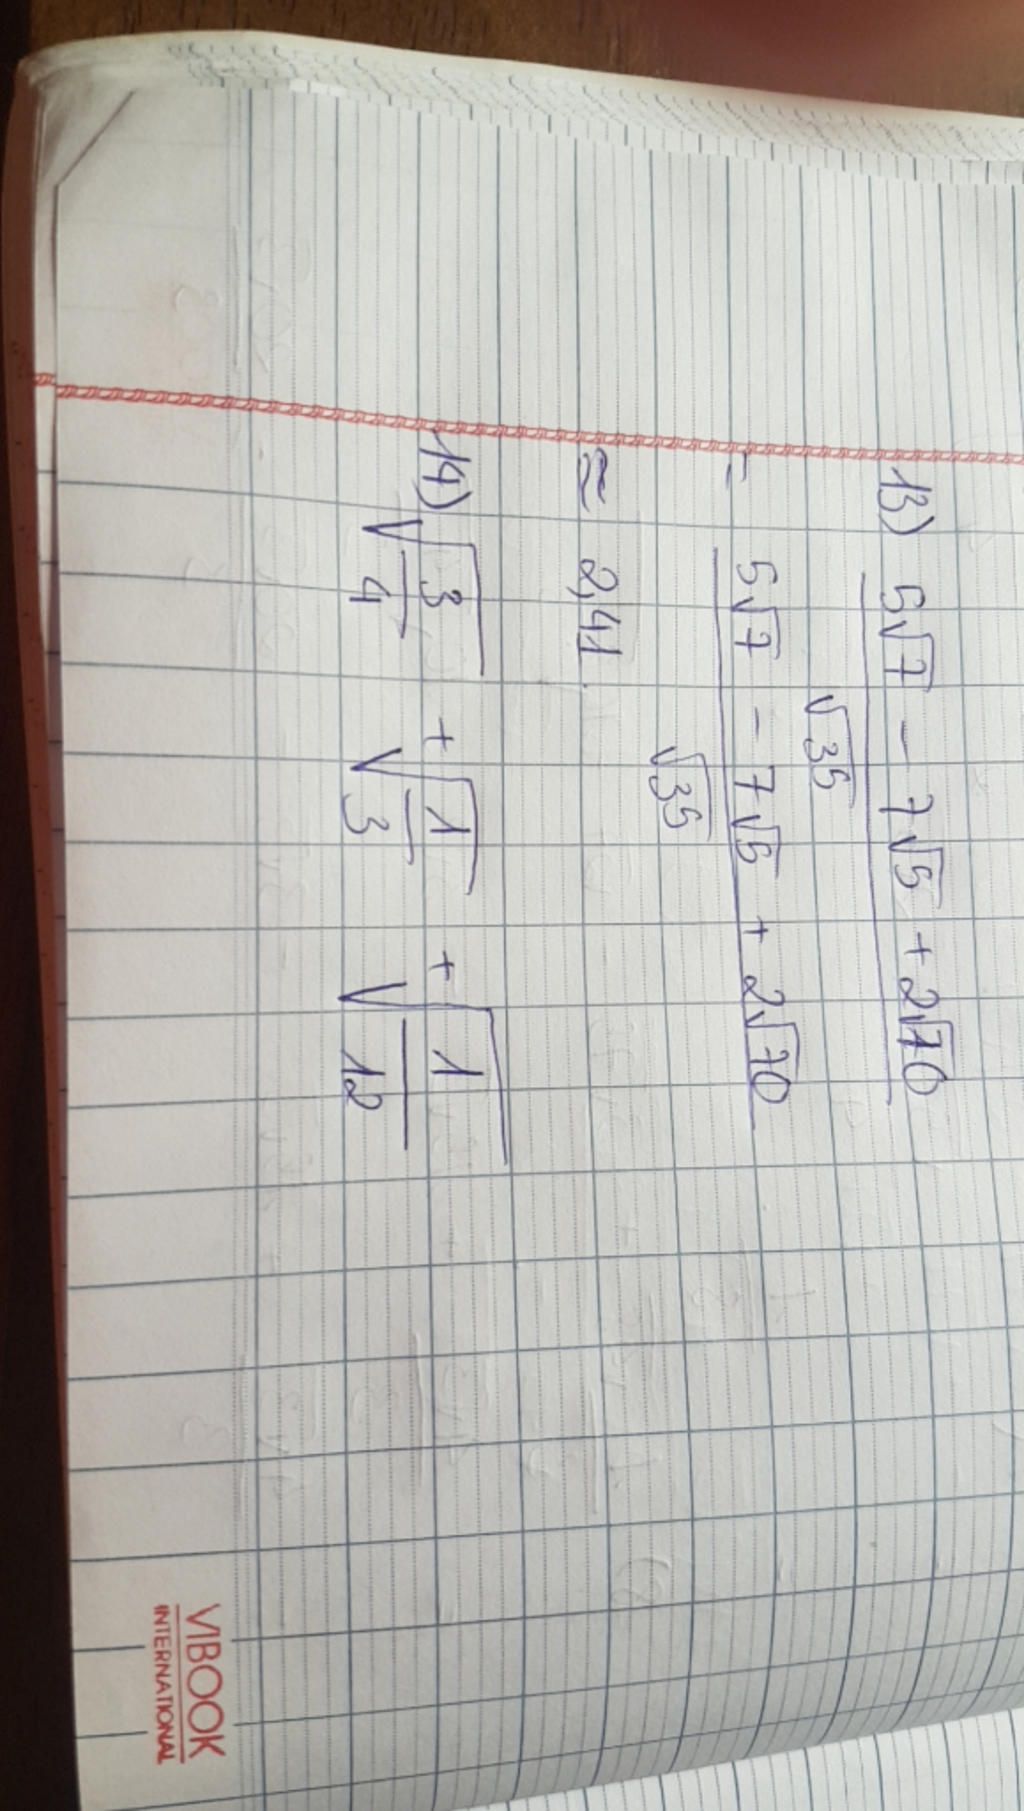 13) 5√7 - 7√5 + 2√70
√35
= 5√7 - 7√5 + 2√70
√35
≈ 2,41.
14) √3/4 + √1/3 + √1/12
VIBOOK
INTERNATIONAL